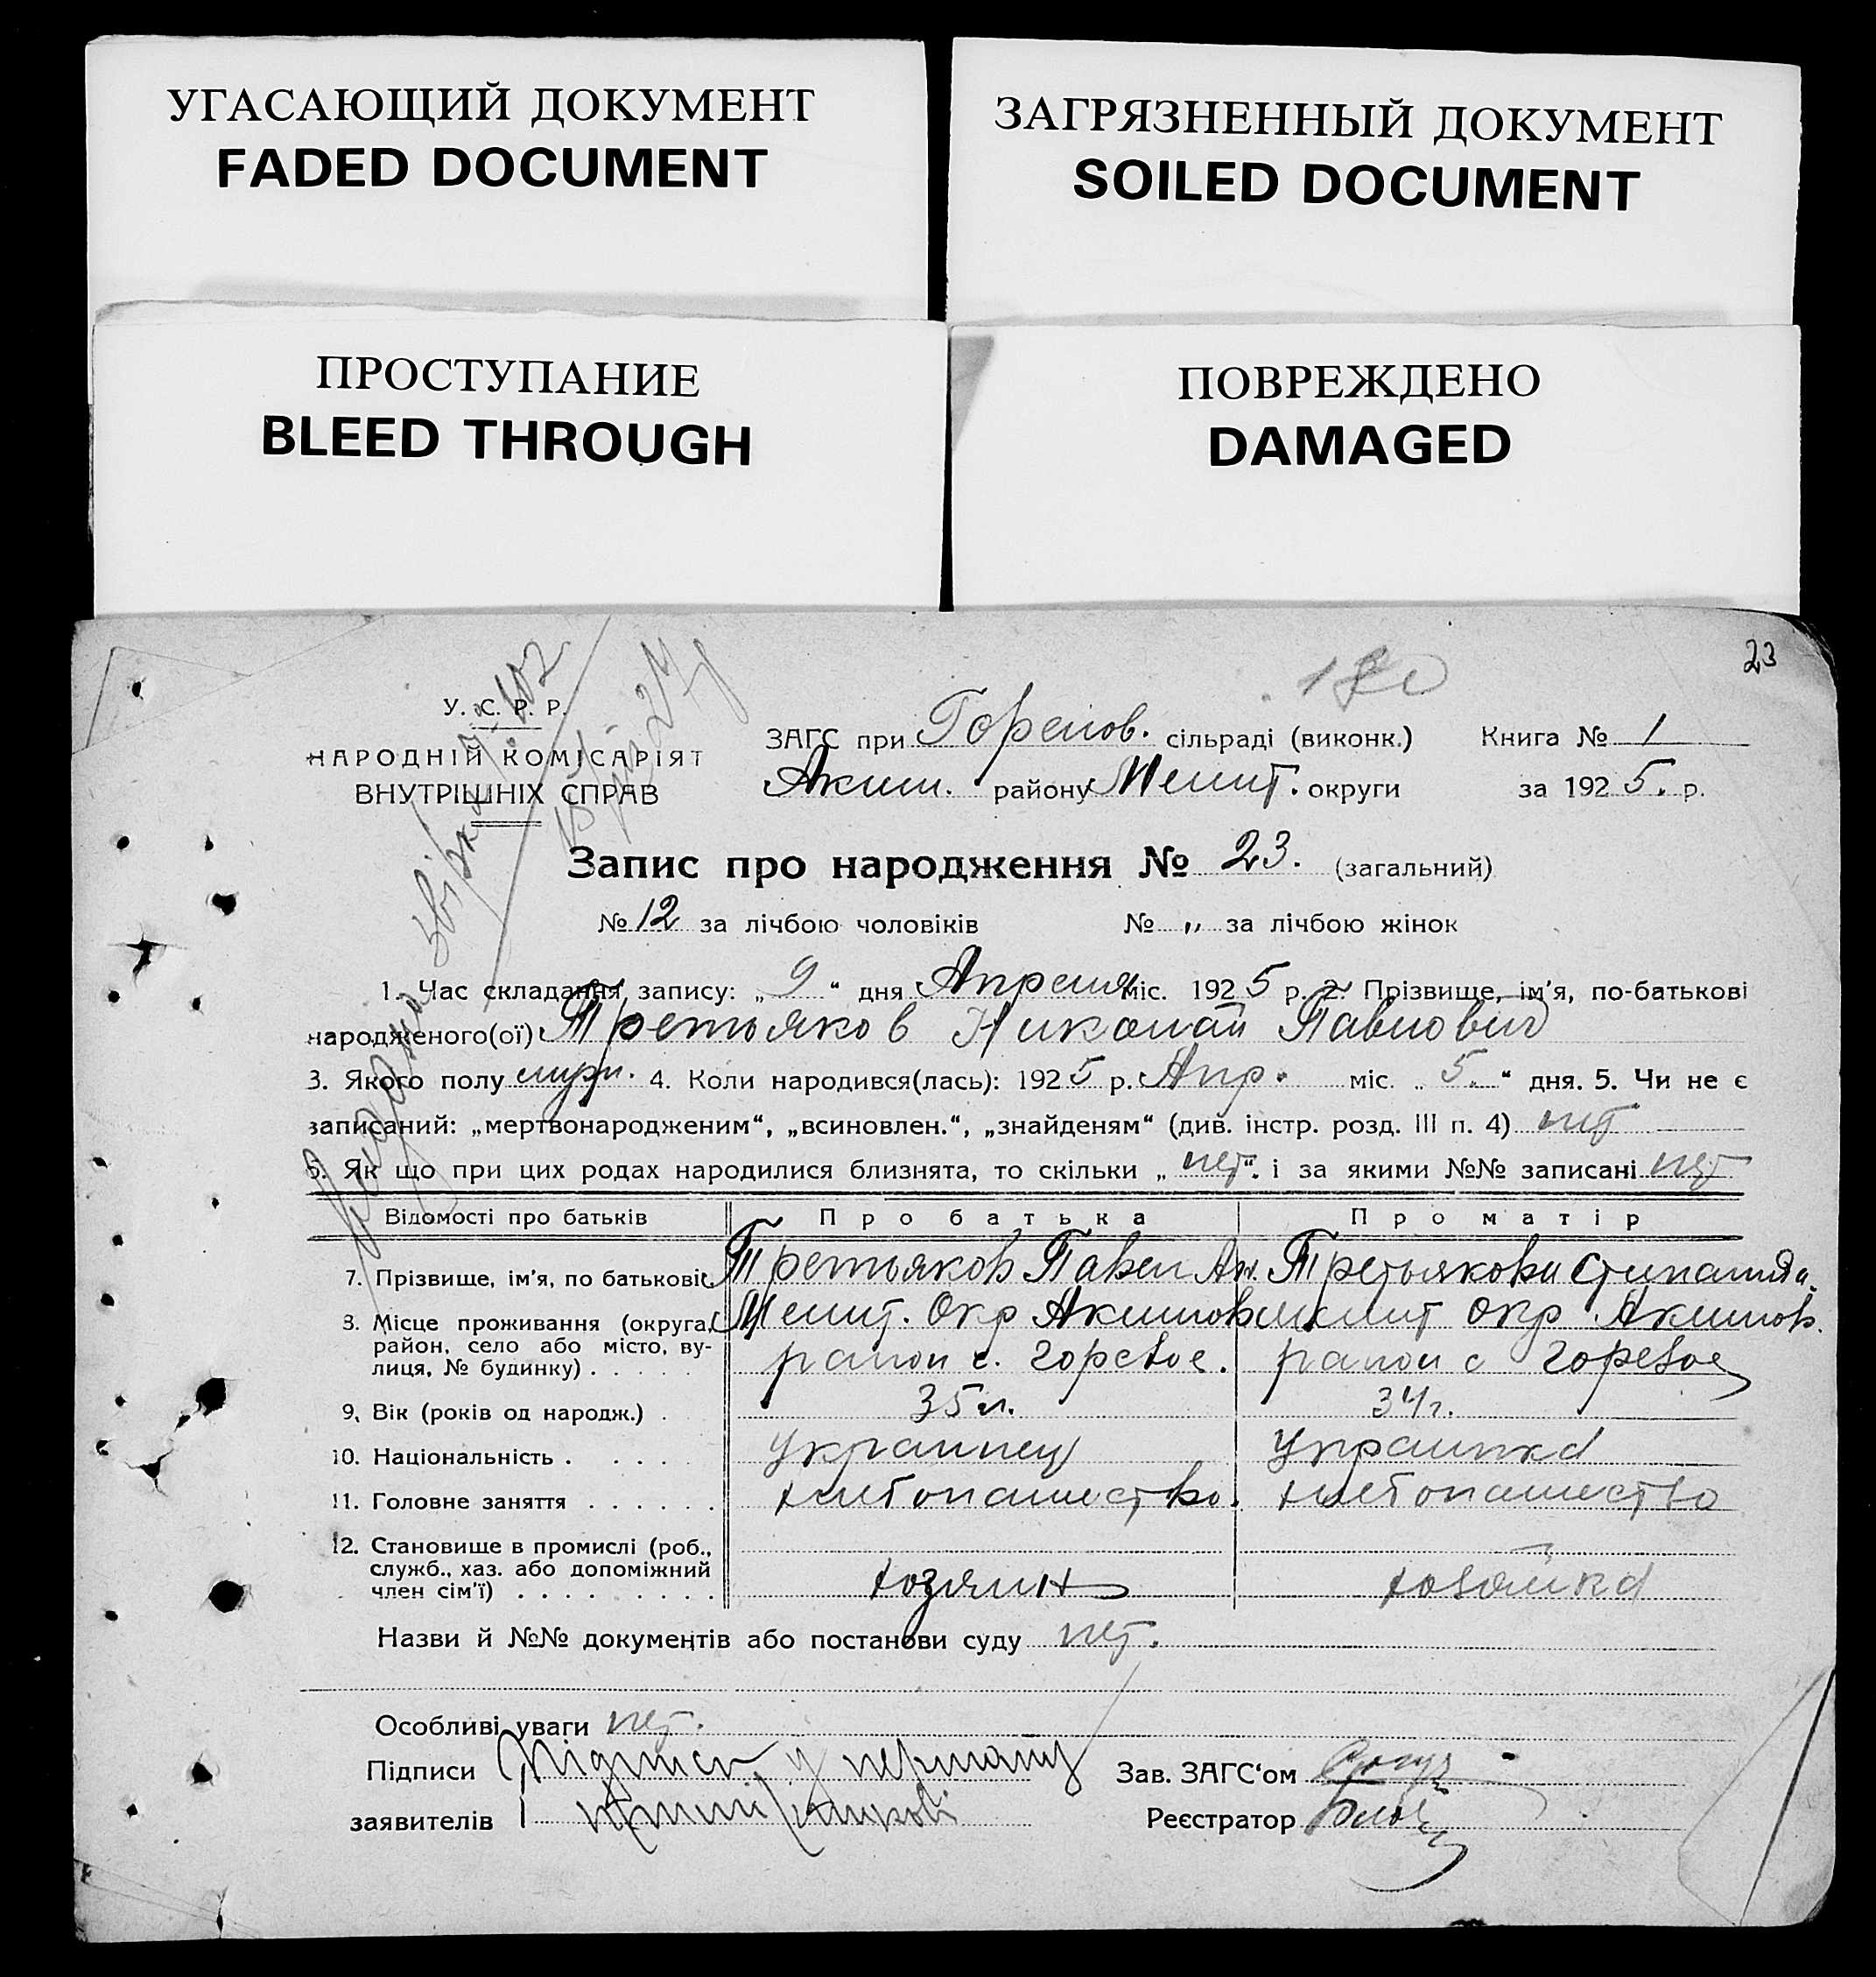 УГАСАЮЩИЙ ДОКУМЕНТ
FADED DOCUMENT
ЗАГРЯЗНЕННЫЙ ДОКУМЕНТ
SOILED DOCUMENT
ПРОСТУПАНИЕ
BLEED THROUGH
ПОВРЕЖДЕНО
DAMAGED
23
180
У. С. Р. Р.
НАРОДНІЙ КОМІСАРІЯТ
ВНУТРІШНІХ СПРАВ
ЗАГС при Горелов. сільраді (виконк.) Книга № 1
Аким. району Мелит. округи за 1925. р.
Запис про народження № 23. (загальний)
№ 12 за лічбою чоловіків № „ за лічбою жінок
1. Час складання запису: „9“ дня Апреля міс. 1925 р. 2. Прізвище, ім'я, по-батькові
народженого(ої) Третьяков Николай Павлович
3. Якого полу муж. 4. Коли народився(лась): 1925 р. Апр. міс. „5.“ дня. 5. Чи не є
записаний: „мертвонародженим“, „всиновлен.“, „знайденям“ (див. інстр. розд. III п. 4) нет
6. Як що при цих родах народилися близнята, то скільки „нет“. і за якими №№ записані нет
Відомості про батьків Про батька Про матір
7. Прізвище, ім'я, по батькові Третьяков Павел Третьякова
8. Місце проживання (округа, район, село або місто, вулиця, № будинку) . . . . .
Мелит. Окр Акимов район с. Горевое.
Мелит Окр Акимов. район с Горевое
9. Вік (років од народж.) . 35 л. 34 г.
10. Національність . . . . . украинец украинка
11. Головне заняття . . . . . . хлебопашество. хлебопашество
12. Становище в промислі (роб., служб., хаз. або допоміжний член сім'ї) . . . . . . . . .
хозяин хозяйка
Назви й №№ документів або постанови суду нет.
Особливі уваги нет.
Підписи Підписи у першому
заявителів примірникові
Зав. ЗАГС'ом
Реєстратор